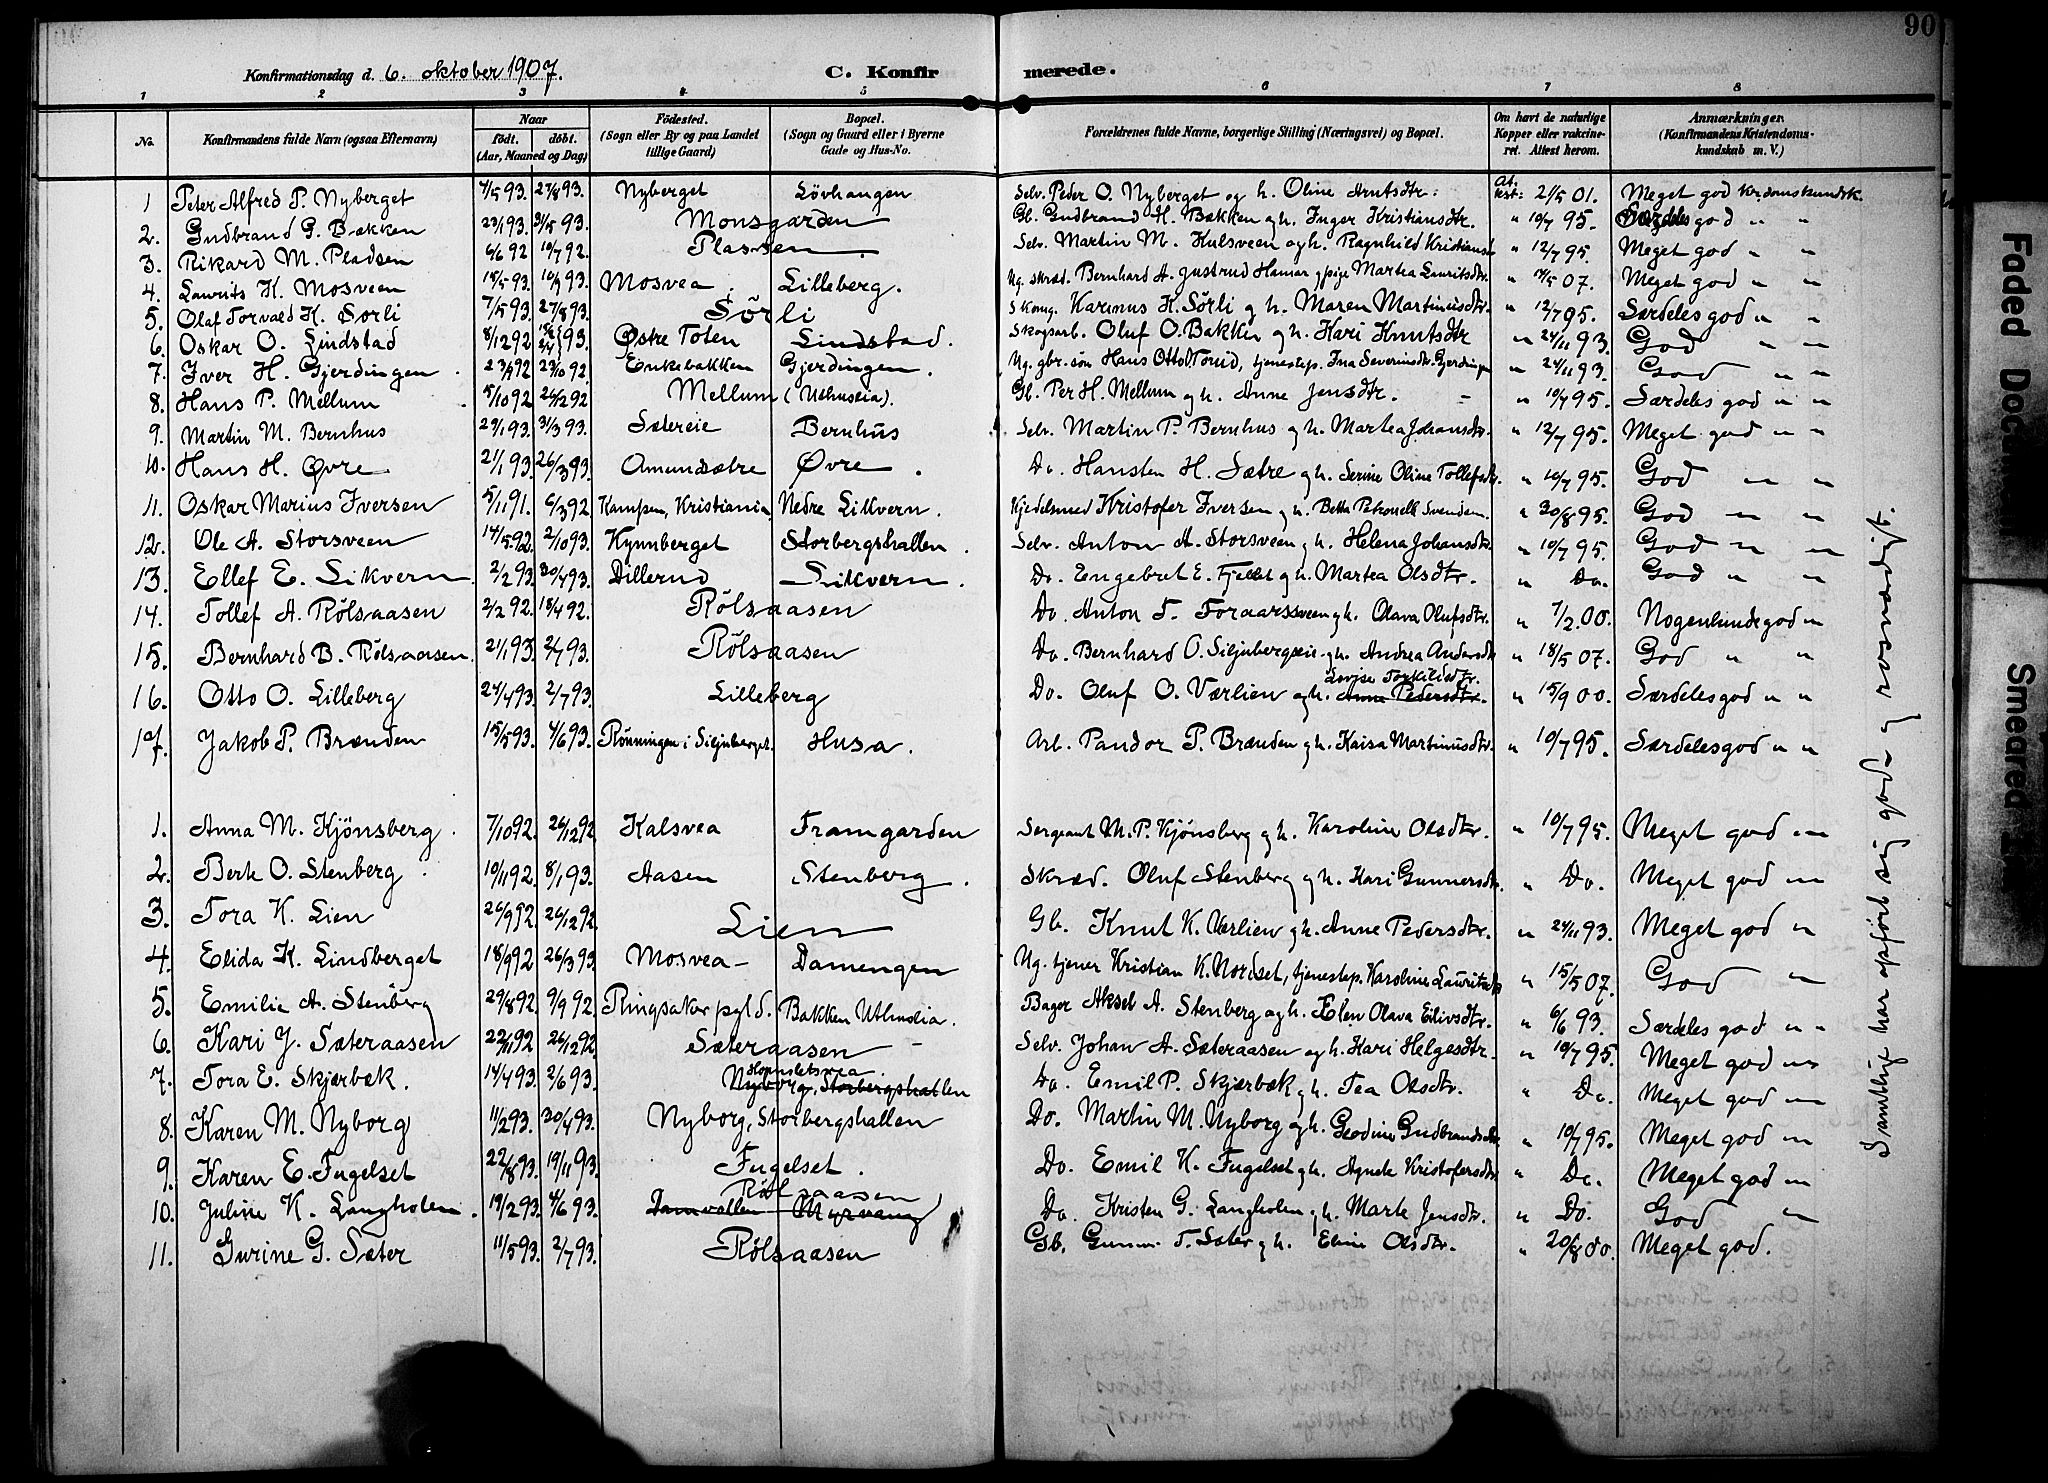 90
Konfirmationsdag d. 6. oktober 1907. C. Konfirmerede.
1 2 3 4 5 6 7 8
No. Konfirmandens fulde Navn (ogsaa Efternavn) Naar født. døbt. (Aar, Maaned og Dag) Fødested. (Sogn eller By og paa Landet tillige Gaard) Bopæl. (Sogn og Gaard eller i Byerne Gade og Hus-No. Forældrenes fulde Navne, borgerlige Stilling (Næringsvei) og Bopæl. Om havt de naturlige Kopper eller vaccineret. Attest herom. Anmærkninger. (Konfirmandens Kristendomskundskab m. V.)
1 Peter Alfred P. Nyberget 4/5 93. 27/8 93. Nyberget Lövhaugen Selv. Peder O. Nyberget og h. Oline Arntsdtr. Attest: 2/5 01. Meget god Krdomskundsk.
2. Gudbrand G. Bækken 23/1 93. 31/5 93. Monsgarden Gb. Gudbrand H. Bækken og h. Inger Kristiansdtr. " 10/7 95. Særdeles god " "
3. Rikard M. Pladsen 6/6 92 10/7 92. Plassen Selv. Martin M. Kulsveen og h. Ragnhild Kristiansd " 12/7 95. Meget god " "
4. Laurits K. Mosveen 18/5 93. 10/9 93. Mosvea. Lilleberg. Ug. skræd. Bernhard A. Gustrud Hamar g pige Martea Lauritsdtr. " 14/5 07. Meget god " "
5. Olaf Torvald K. Sorli 7/5 93. 27/8 93. Sörli Skomg. Karinus K. Sörli g h. Maren Martinusdtr. " 12/7 95. Særdeles god " "
6. Oskar O. Lindstad 8/12 92 93. Østre Toten Lindstad. Skogsarb. Oluf O. Bakken g h. Kari Knutsdtr " 24/11 93. God " "
7. Iver H. Gjerdingen. 23/7 92 23/10 92. Enkebakken Gjerdingen. Ug. gbr. sön Hans Otto Torud, tjenestep. Ina Severinsdtr. Gjerdingen " 24/11 93. God " "
8. Hans P. Mellum 5/10 92 26/12 92 Mellum (Uthuslia). Gb. Per H. Mellum g h. Anne Jensdtr. - " 10/7 95. Særdeles god " "
9. Martin M. Bernhus 29/1 93. 31/3 93. Sætereie Bernhus Selv. Martin P. Bernhus g h. Martea Johansdtr. " 12/7 95. Meget god " "
10. Hans H. Øvre 21/1 93. 26/3 93. Amundsætre Øvre. Do. Hansten H. Sætre g h. Serine Oline Tollefsdtr. " 10/7 95. God " "
11. Oskar Marius Iversen 5/11 91. 6/3 92 Kampen, Kristiania. Nedre Likvern. Kjedelsmed Kristofer Iversen g h. Betha Petronelle Svendsen. " 30/8 95. God " "
12. Ole A. Storsveen 14/5 92. 2/10 93. Kynnberget Storbergshallen. Selv. Anton A. Storsveen g h. Helena Johansdtr. " 10/7 95. God " "
13. Ellef E. Likvern. 2/2 93. 30/4 93. Dillerud Likvern. Do. Engebret E. Fjellet g h. Martea Olsdtr. " Do. God " "
14. Tollef A. Rölsaasen 2/2 92. 18/4 92. Rölsaasen Do. Anton T. Foraarssveen g h. Olava Olufsdtr. " 7/2 00. Nogenlunde god "
15. Bernhard B. Rölsaasen. 21/1 93. 2/7 93. Rölsaasen Do. Bernhard O. Siljubergseie g h. Andrea Andersdtr " 18/5 07. God " "
16. Otto O. Lilleberg 24/4 93. 2/7 93. Lilleberg Do. Oluf O. Værlien og h. Lovise Torkildsdtr. Anne Pedersdtr. " 15/9 00. Særdeles god " "
17. Jakob P. Brænden 15/5 93. 4/6 93. Rönningen i Siljuberget. Husa. Arb. Pandor P. Brænden g h. Kaisa Martinusdtr. " 10/7 95. Særdeles god " "
1. Anna M. Kjönsberg. 7/10 92. 26/12 92. Kalsvea Framgarden Sergeant M. P. Kjönsberg g h. Karoline Olsdtr. " 10/7 95. Meget god "
2. Berte O. Stenberg. 10/11 92. 8/1 93. Aasen Stenberg. Skræd. Oluf Stenberg g h. Kari Gunnersdtr. " Do. Meget god "
3. Tora K. Lien 26/9 92. 26/12 92. Lien Gb. Knut K. Værlien g h. Anne Pedersdtr. " 24/11 93. Meget god "
4. Elida K. Lindberget 18/9 92 26/3 93. Mosvea - Damengen Ug. tjener Kristian K. Nordset, tjenestep. Karoline Lauritsdtr " 15/5 07. God "
5. Emilie A. Stenberg 29/8 92. 9/9 92. Ringsaker pgld. Bakken Uthuslia. Bager Aksel A. Stenberg og h. Elen Olava Eilivsdtr. " 6/6 93. Særdeles god " "
6. Kari J. Sæteraasen 22/11 92 26/12 92 Sæteraasen Selv. Johan A. Sæteraasen og h. Kari Helgesdtr. " 10/7 95. Meget god "
7. Tora E. Skjærbæk. 14/4 93. 2/6 93. Nyborg, Storbergshallen Do. Emil P. Skjærbæk g h. Tea Olsdtr. " Do. Meget god "
8. Karen M. Nyborg 11/2 93. 30/4 93. Nyborg, Storbergshallen Do. Martin M. Nyborg og h. Gudbrandsdtr " 10/7 95. Meget god "
9. Karen E. Fugelset 22/8 93. 19/11 93. Fugelset. Do. Emil K. Fugelset g h. Agnete Kristofersdtr " Do. Meget god "
10. Juline K. Langholen. 19/2 93. 4/6 93. Rölsaasen Damvollen Myrvang Do. Kristen G. Langholen g h. Marte Jensdtr. " Do. God "
11. Gurine G. Sæter 11/5 93. 2/7 93. Rölsaasen Gb. Gunnar T. Sæter g h. Eline Olsdtr. " 20/8 00. Meget god.
Samtlige har opført sig godt og rosværdigt.
Faded Doc
Smeared